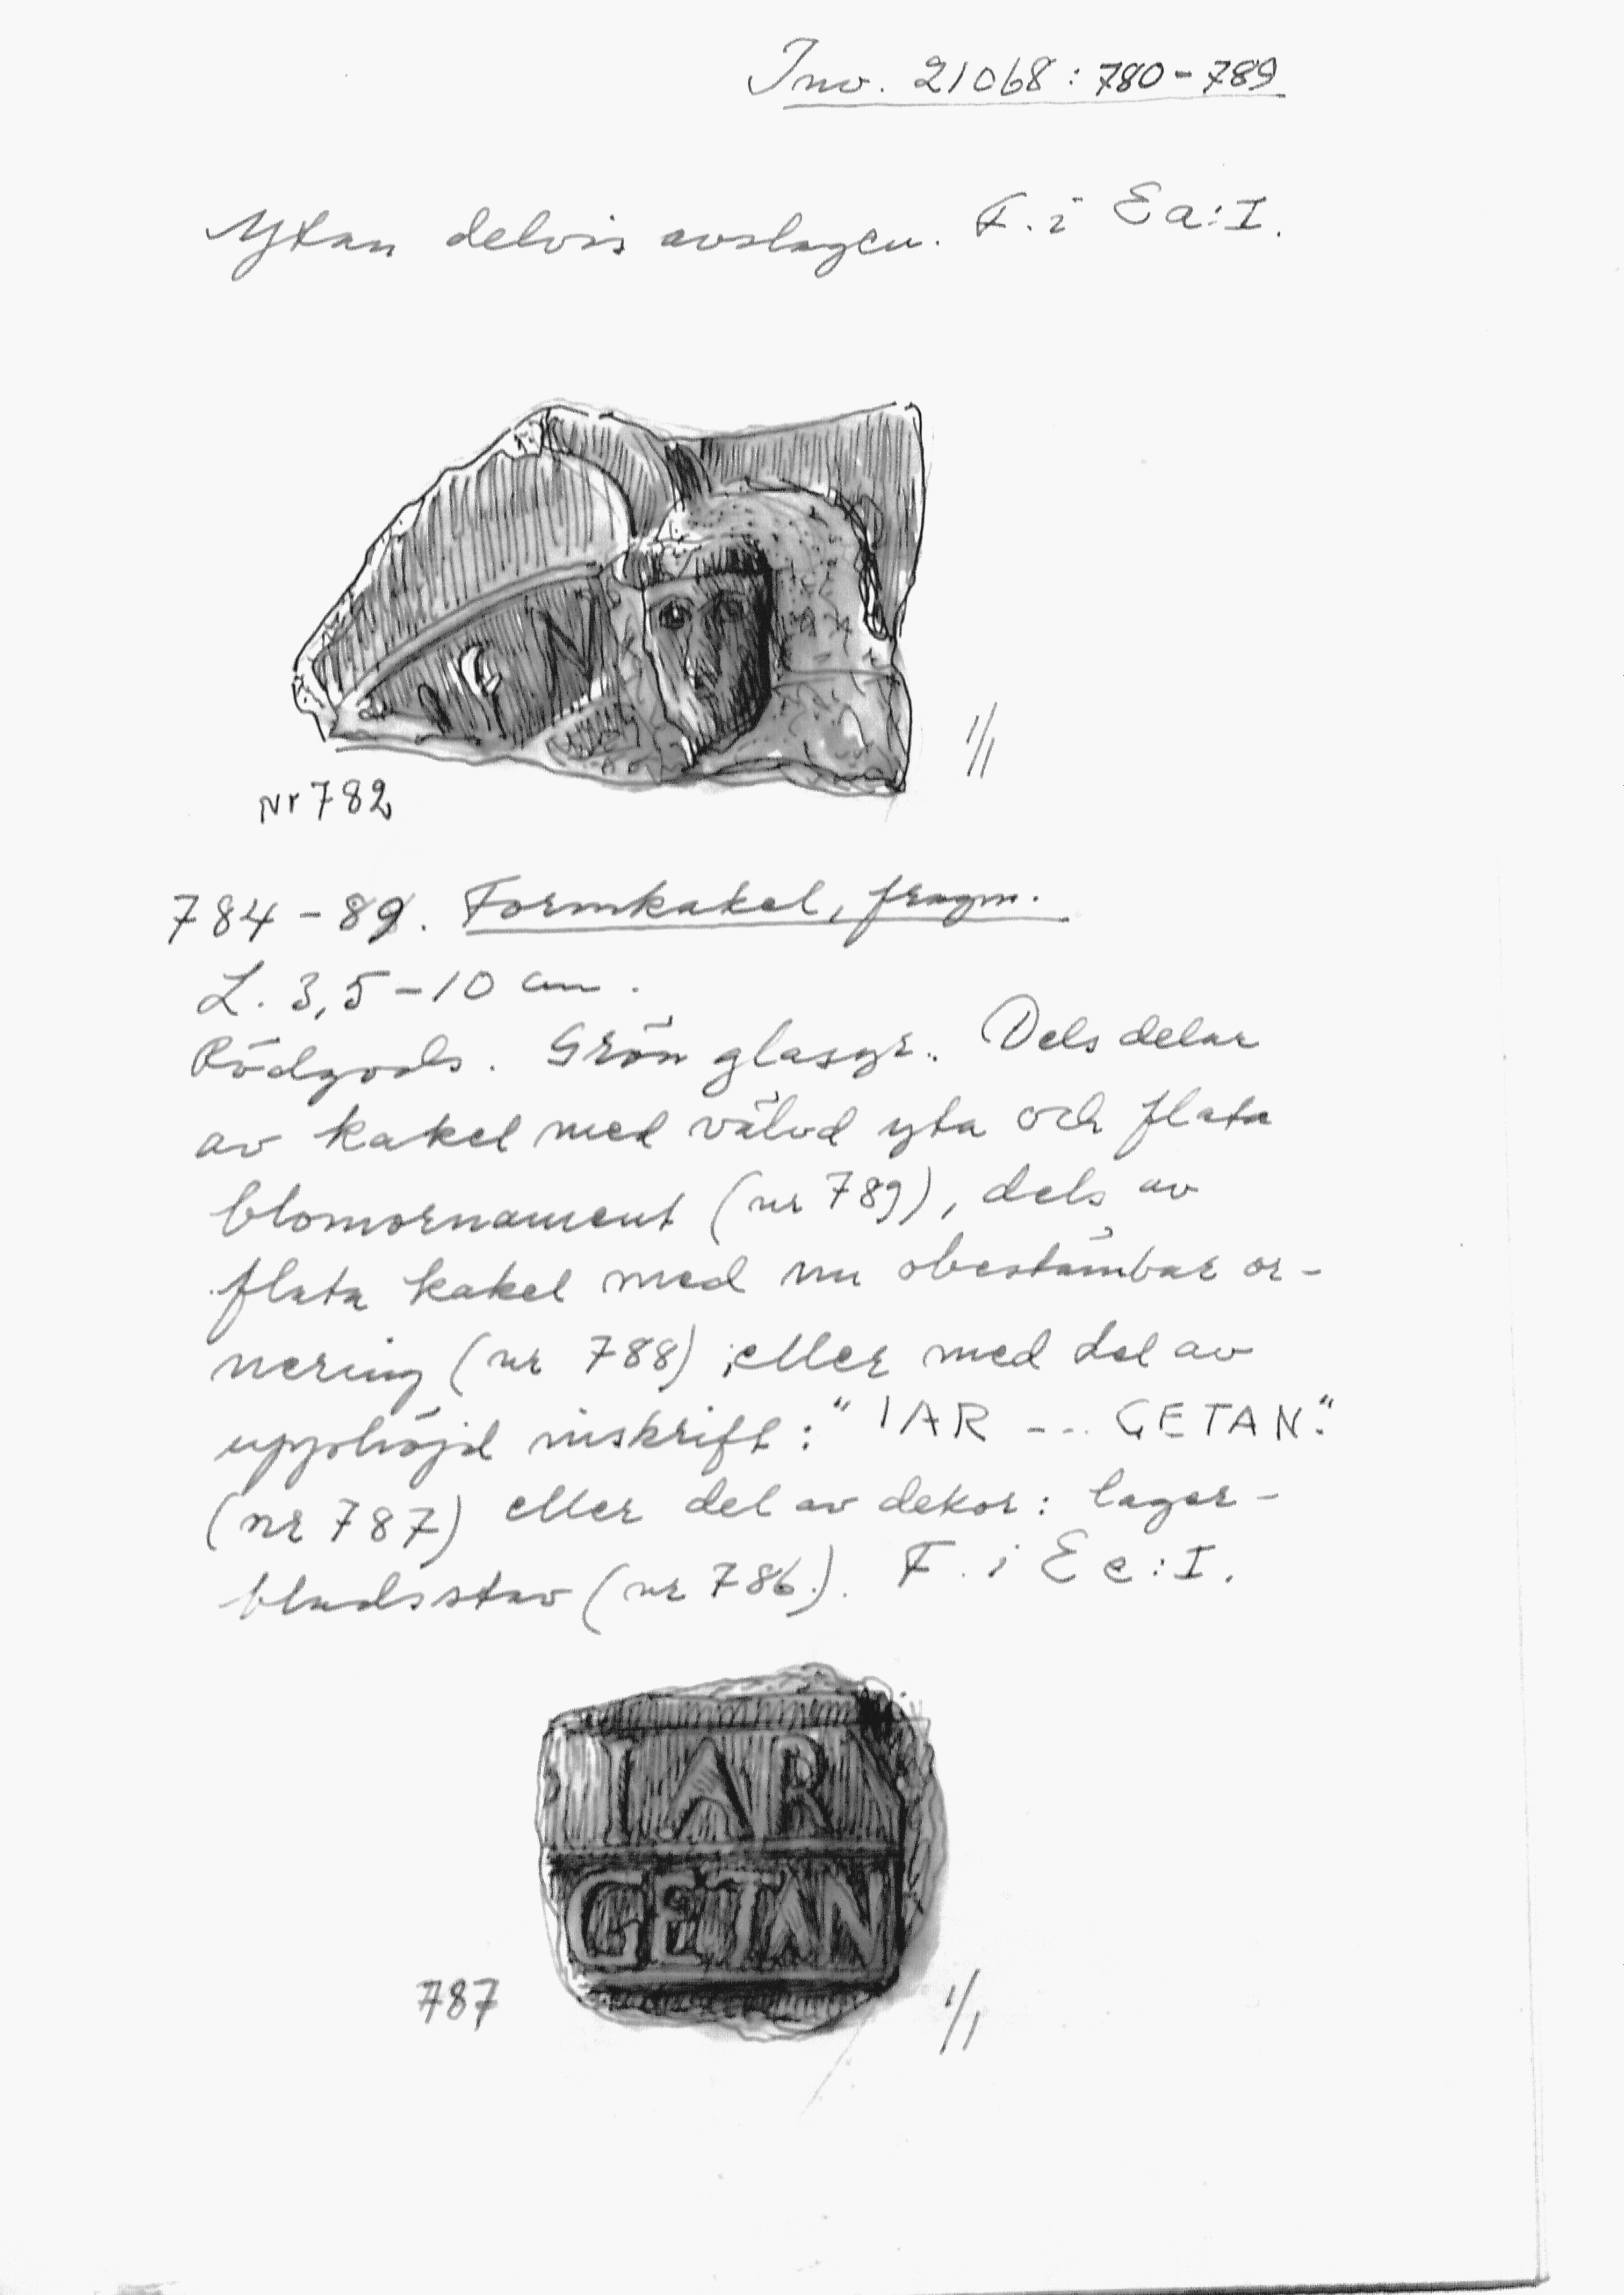 Inv. 21068:780-789
Ytan delvis avslagen. F. i Ea:I.
N
1/1
Nr 782
784-89. Formkakel, fragm.
L. 3,5-10 cm.
Rödgods. Grön glasyr. Dels delar
av kakel med välvd yta och flata
blomornament (nr 789), dels av
flata kakel med nu obestämbar or-
nering (nr 788), eller med del av
upphöjd inskrift: "IAR --- GETAN."
(nr 787) eller del av dekor: lager-
bladsstav (nr 786). F. i Ec:I.
IAR
GETAN
787
1/1